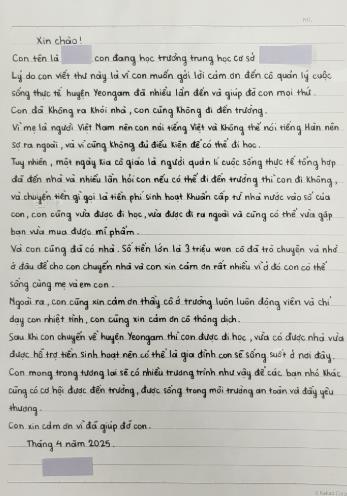 Xin chào!
Con tên là con đang học trường trung học cơ sở
Lý do con viết thư này là vì con muốn gởi lời cảm ơn đến cô quản lý cuộc
sống thực tế huyện Yeongam đã nhiều lần đến và giúp đỡ con mọi thứ.
Con đã Không ra Khỏi nhà, con cũng Không đi đến trường.
Vì mẹ là người Việt Nam nên con nói tiếng Việt và Không thể nói tiếng Hàn nên
sợ ra ngoài, và vì cũng Không đủ điều Kiện để có thể đi học.
Tuy nhiên, một ngày Kia cô giáo là người quản lí cuộc sống thực tế tổng hợp
đã đến nhà và nhiều lần hỏi con nếu có thể đi đến trường thì con đi Không,
và chuyển tiền gì gọi là tiền phí sinh hoạt Khuẩn cấp từ nhà nước vào sổ của
con, con cũng vừa được đi học, vừa được đi ra ngoài và cũng có thể vừa gặp
bạn vừa mua được mĩ phẩm.
Và con cũng đã có nhà. Số tiền lớn là 3 triệu won cô đã trò chuyện và nhờ
ở đâu để cho con chuyển nhà và con xin cảm ơn rất nhiều vì ở đó con có thể
sống cùng mẹ và em con.
Ngoài ra, con cũng xin cảm ơn thầy cô ở trường luôn luôn động viên và chỉ
dạy con nhiệt tình, con cũng xin cảm ơn cô thông dịch.
Sau Khi con chuyển về huyện Yeongam thì con được đi học, vừa có được nhà vừa
được hỗ trợ tiền sinh hoạt nên có thể là gia đình con sẽ sống suốt ở nơi đây.
Con mong trong tương lai sẽ có nhiều trương trình như vậy để các bạn nhỏ Khác
cũng có cơ hội được đến trường, được sống trong môi trường an toàn và đầy yêu
thương.
Con xin cảm ơn vì đã giúp đỡ con.
Tháng 4 năm 2025.